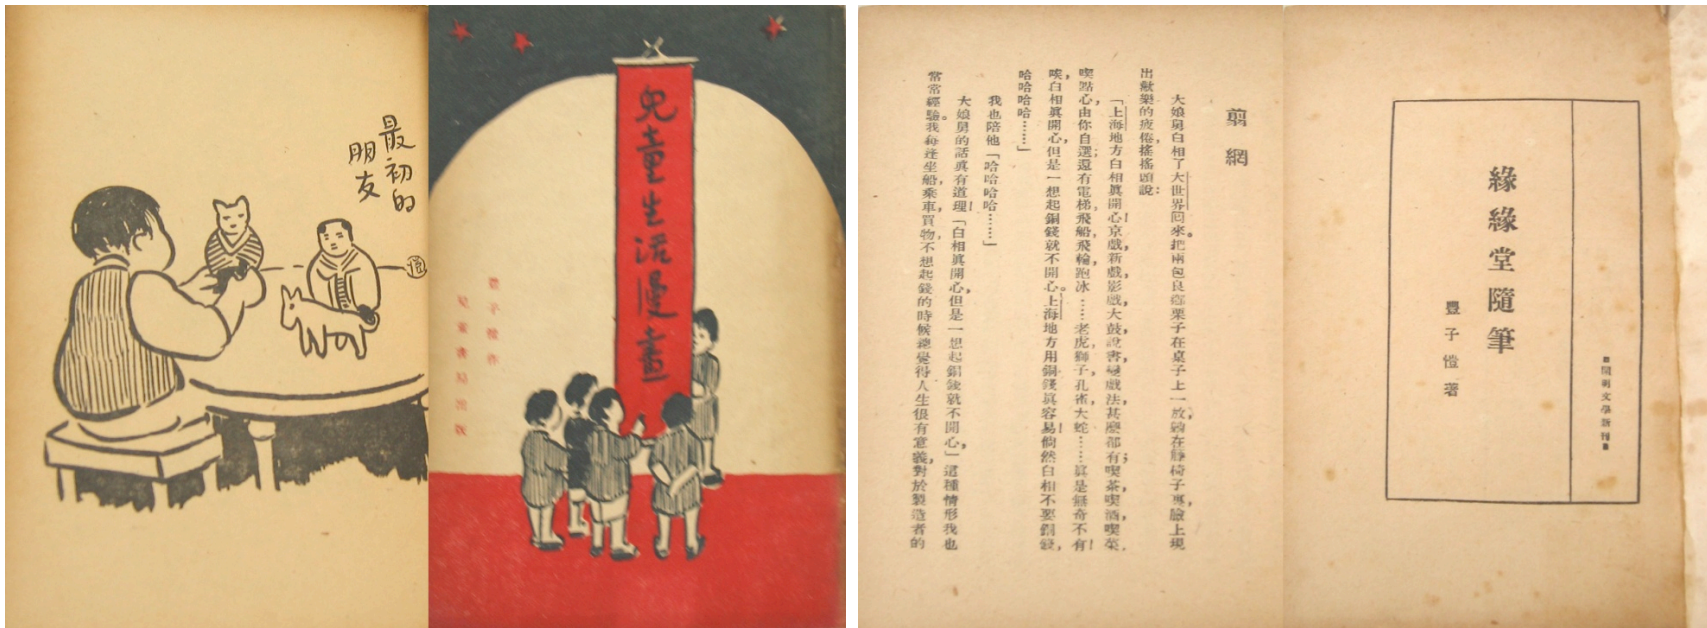 最初的
朋友
愷
兒童生活漫畫
豐子愷作
兒童書局出版
翦網
大娘舅白相了大世界囘來。把兩包良鄉栗子在桌子上一放,躺在籐椅子裏,臉上現
出歡樂的疲倦,搖搖頭說:
「上海地方白相眞開心!京戲,新戲,影戲,大鼓,說書,變戲法,甚麼都有;喫茶,喫酒,喫菜,
喫點心,由你自選;還有電梯,飛船,飛輪,跑冰……老虎,獅子,孔雀,大蛇……眞是無奇不有!
唉,白相眞開心,但是一想起銅錢就不開心。上海地方用銅錢眞容易!倘然白相不要銅錢,
哈哈哈哈……」
我也陪他「哈哈哈哈……」
大娘舅的話眞有道理!「白相眞開心,但是一想起銅錢就不開心,」這種情形我也
常常經驗。我每逢坐船,乘車,買物,不想起錢的時候,總覺得人生很有意義,對於製造者的
開明文學新刊
緣緣堂隨筆
豐子愷著